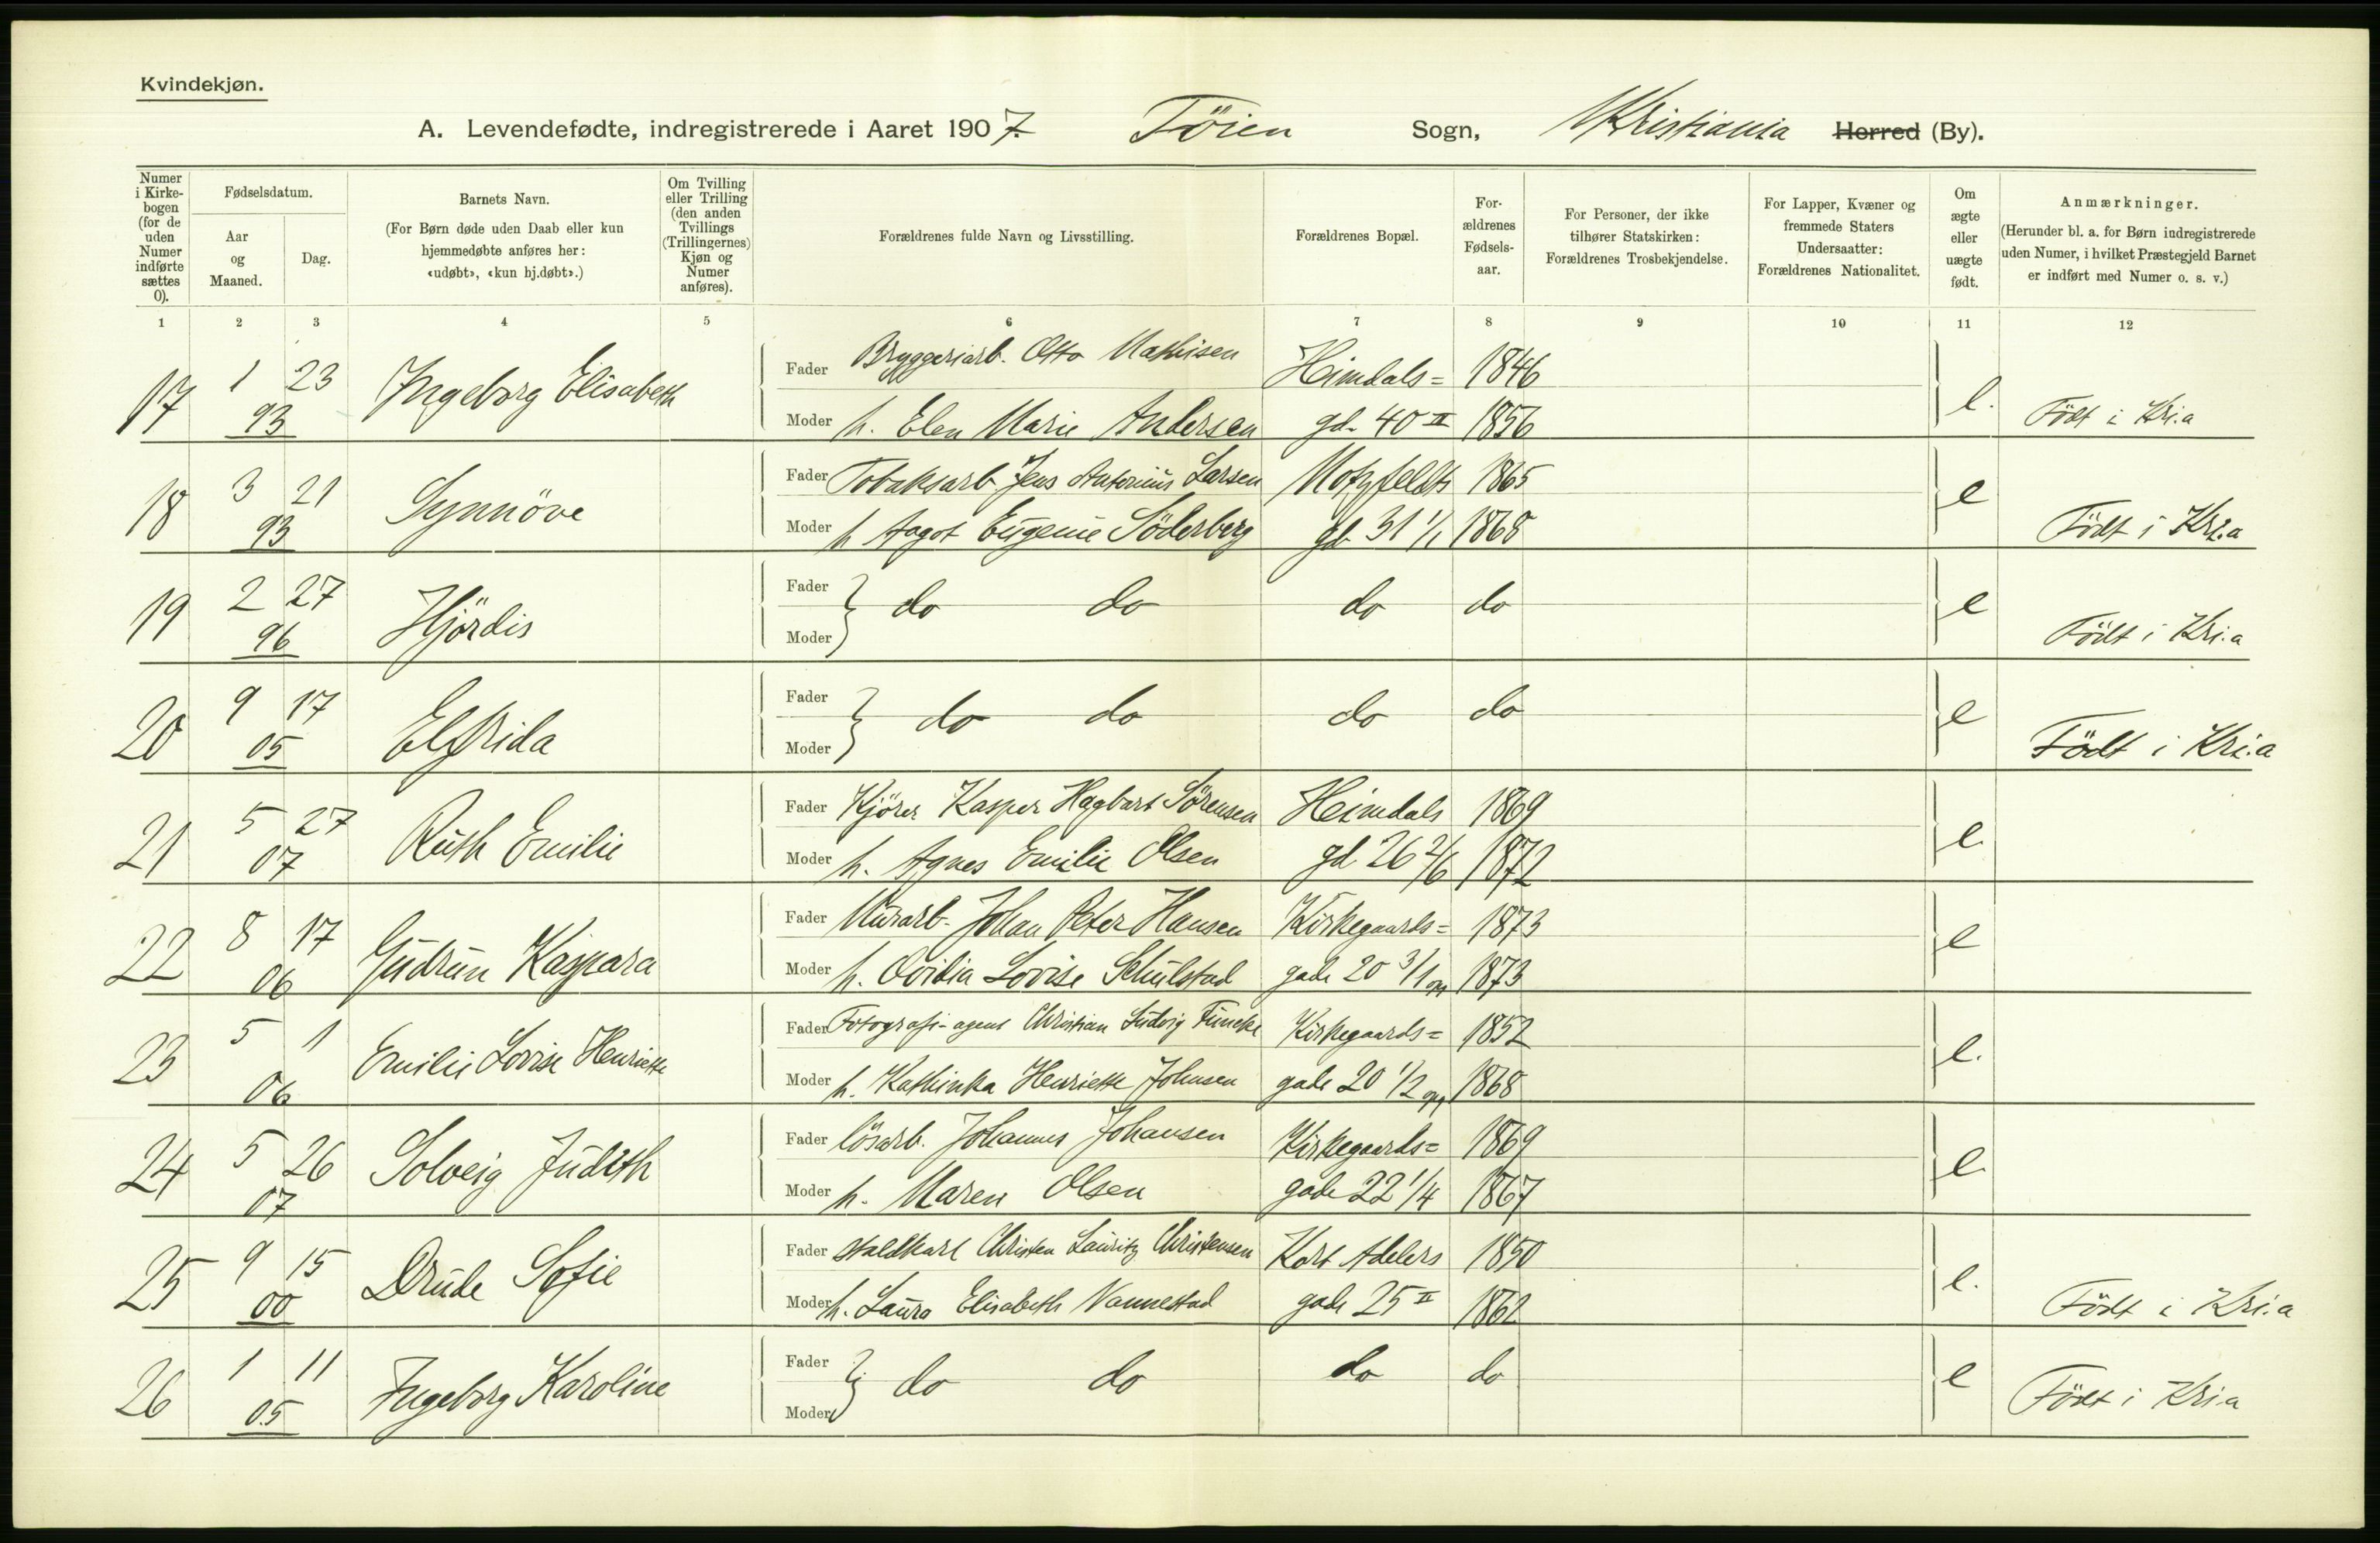 Kvindekjøn.
A. Levendefødte, indregistrerede i Aaret 1907. Töien Sogn, Kristiania Herred (By).
Numer i Kirkebogen (for de uden Numer indførte sættes 0).
Fødselsdatum.
Aar og Maaned.
Dag.
Barnets Navn.
(For Børn døde uden Daab eller kun hjemmedøbte anføres her: «udøbt», «kun hj.døbt».)
Om Tvilling eller Trilling (den anden Tvillings (Trillingernes) Kjøn og Numer anføres).
Forældrenes fulde Navn og Livsstilling.
Forældrenes Bopæl.
Forældrenes Fødselsaar.
For Personer, der ikke tilhører Statskirken: Forældrenes Trosbekjendelse.
For Lapper, Kvæner og fremmede Staters Undersaatter: Forældrenes Nationalitet.
Om ægte eller uægte født.
Anmærkninger.
(Herunder bl. a. for Børn indregistrerede uden Numer, i hvilket Præstegjeld Barnet er indført med Numer o. s. v.)
1 2 3 4 5 6 7 8 9 10 11 12
17 1 23 Ingeborg Elisabeth Fader Bryggeriarb. Otto Mathisen Heimdals= 1846 e.
93 Moder h. Elen Marie Andersen gd. 40 II 1856 Födt i Kri.a
18 3 21 Synnöve Fader Tobaksarb Jens Antonius Larsen Motzfeldts 1865 e
93 Moder h Aagot Eugenie Söderberg gd 31 1/1 1868 Födt i Kri.a
19 2 27 Hjördis Fader do do do do e
96 Moder Födt i Kri.a
20 9 17 Elfrida Fader do do do do e
05 Moder Födt i Kri.a
21 5 27 Ruth Emilie Fader Kjörer Kasper Hagbart Sörensen Heimdals 1869 e.
07 Moder h. Agnes Emilie Olsen gd 26 2/6 1872
22 8 17 Gudrun Kaspara Fader Murarb. Johan Peter Hansen Kirkegaards= 1873 e
06 Moder h. Ovidia Lovise Schulstad gade 20 3/1 opg 1873
23 5 1 Emilie Lovise Henriette Fader Fotografi-agent Christian Ludvig Funcke Kirkegaards= 1852 e.
06 Moder h. Kathinka Henriette Johnsen gade 20 1/2 opg 1868
24 5 26 Solveig Judith Fader lösarb. Johannes Johansen Kirkegaards= 1869 e.
07 Moder h. Maren Olsen gade 22 1/4 1867
25 9 15 Drude Sofie Fader staldkarl Christen Lauritz Christensen Kort Adelers 1850 e.
00 Moder h. Laura Elisabeth Vannestad gade 25 II 1862 Födt i Kri.a
26 1 11 Ingeborg Karoline Fader do do do do e
05 Moder Födt i Kri.a